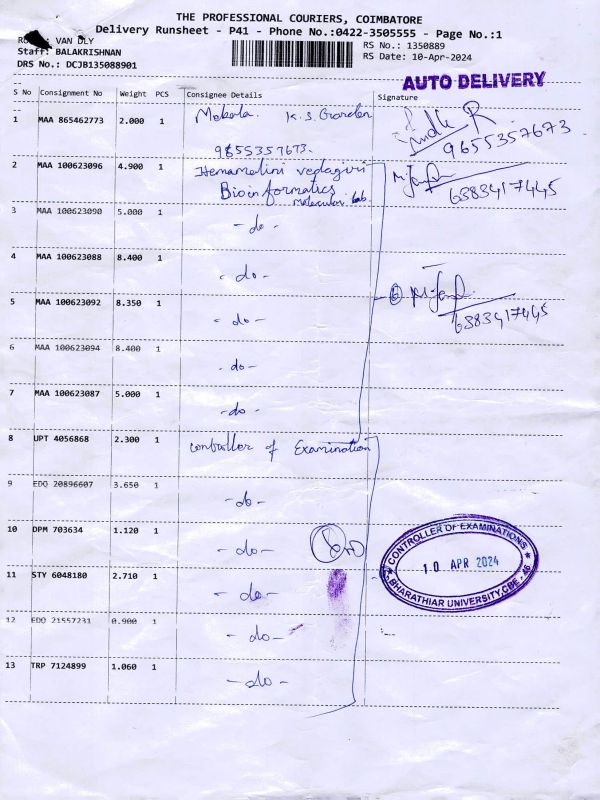 THE PROFESSIONAL COURIERS, COIMBATORE
Delivery Runsheet - P41 - Phone No.:0422-3505555 - Page No.:1
VAN DLY
Staff: BALAKRISHNAN
DRS No.: DCJB135088901
RS No.: 1350889
RS Date: 10-Apr-2024
AUTO DELIVERY
S No Consignment No Weight PCS Consignee Details Signature
1 MAA 865462773 2.000 1 K.S. Garden
9655357673.
R
9655357673
2 MAA 100623096 4.900 1 Hemamalini vedagiri
Bioinformatics
Molecular Lab
6383417445
3 MAA 100623090 5.000 1 - do -
4 MAA 100623088 8.400 1 - do -
5 MAA 100623092 8.350 1 - do -
6383417445
6 MAA 100623094 8.400 1 - do -
7 MAA 100623087 5.000 1 - do -
8 UPT 4056868 2.300 1 Controller of Examination
9 EDO 20896607 3.650 1 - do -
10 DPM 703634 1.120 1 - do -
11 STY 6048180 2.710 1 - do -
CONTROLLER OF EXAMINATIONS
10 APR 2024
BHARATHIAR UNIVERSITY, CBE - 46
12 EDO 21557231 0.900 1 - do -
13 TRP 7124899 1.060 1 - do -